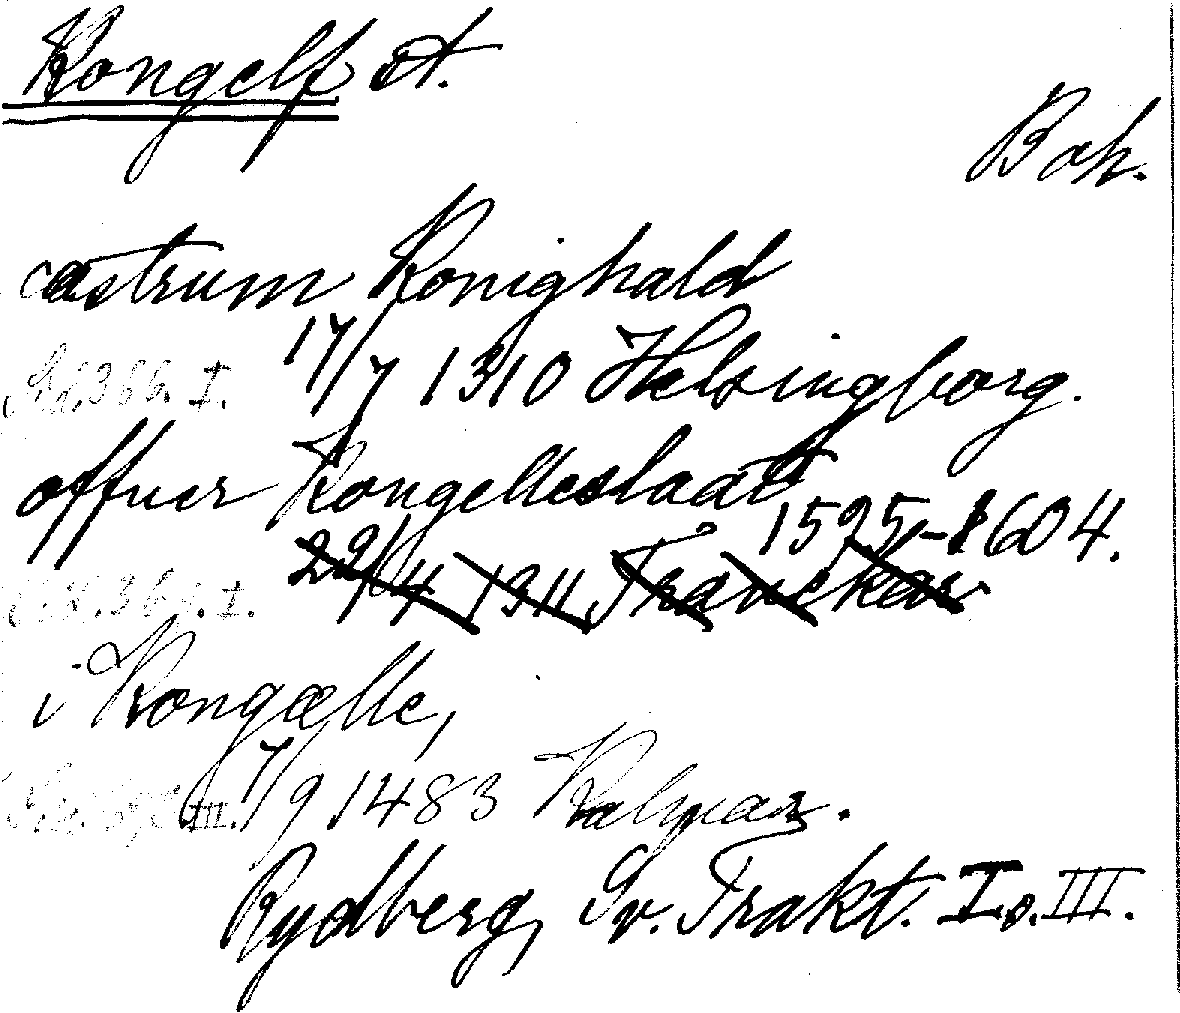 Kongelf st.
Boh.
castrum Konighald
17/7 1310 Helsingborg.
offuer Kongellestaadt
1595-1604.
29/4 1311
i Kongælle,
7/9 1483 Kalmar.
Rydberg, Sv. Trakt. I o. III.